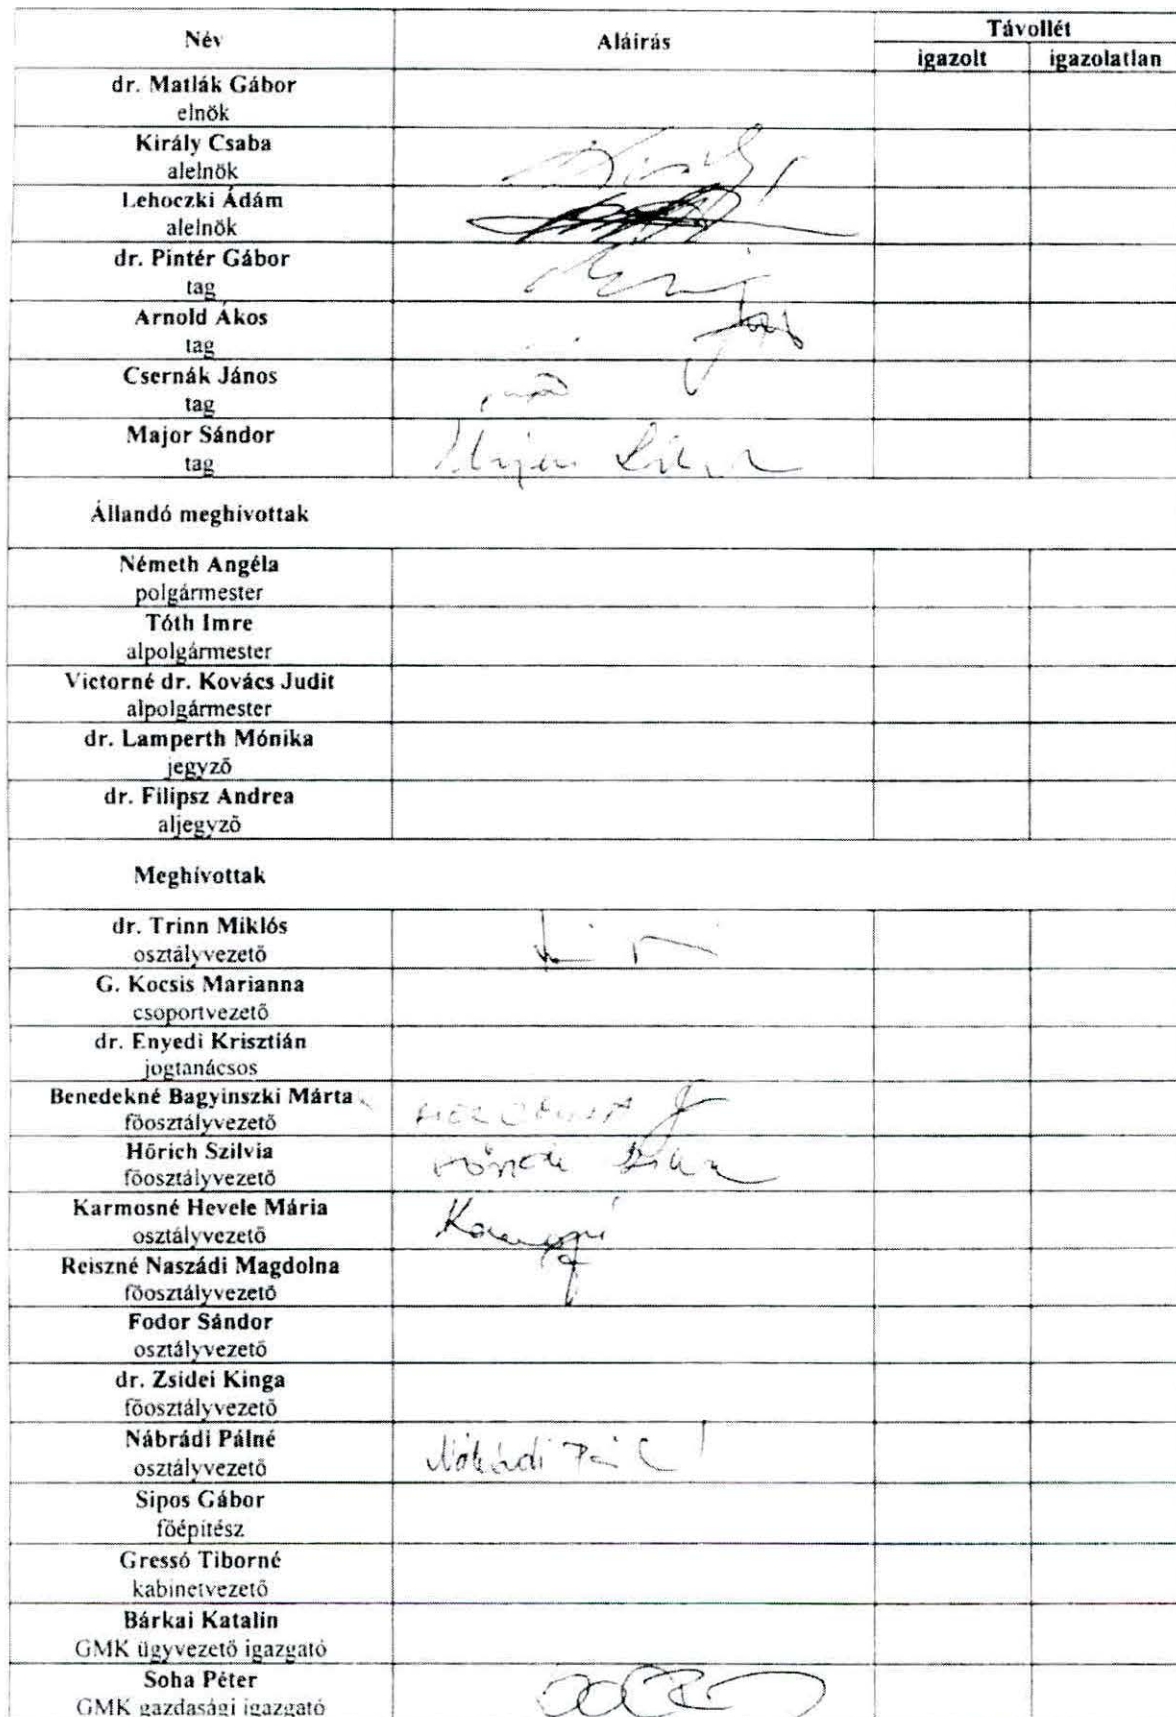 Név
Aláírás
Távollét
igazolt
igazolatlan
dr. Matlák Gábor
elnök
Király Csaba
alelnök
Lehoczki Ádám
alelnök
dr. Pintér Gábor
tag
Arnold Ákos
tag
Csernák János
tag
Major Sándor
tag
Állandó meghívottak
Németh Angéla
polgármester
Tóth Imre
alpolgármester
Victorné dr. Kovács Judit
alpolgármester
dr. Lamperth Mónika
jegyző
dr. Filipsz Andrea
aljegyző
Meghívottak
dr. Trinn Miklós
osztályvezető
G. Kocsis Marianna
csoportvezető
dr. Enyedi Krisztián
jogtanácsos
Benedekné Bagyinszki Márta
főosztályvezető
Hőrich Szilvia
főosztályvezető
Karmosné Hevele Mária
osztályvezető
Reiszné Naszádi Magdolna
főosztályvezető
Fodor Sándor
osztályvezető
dr. Zsidei Kinga
főosztályvezető
Nábrádi Pálné
osztályvezető
Sipos Gábor
főépítész
Gressó Tiborné
kabinetvezető
Bárkai Katalin
GMK ügyvezető igazgató
Soha Péter
GMK gazdasági igazgató